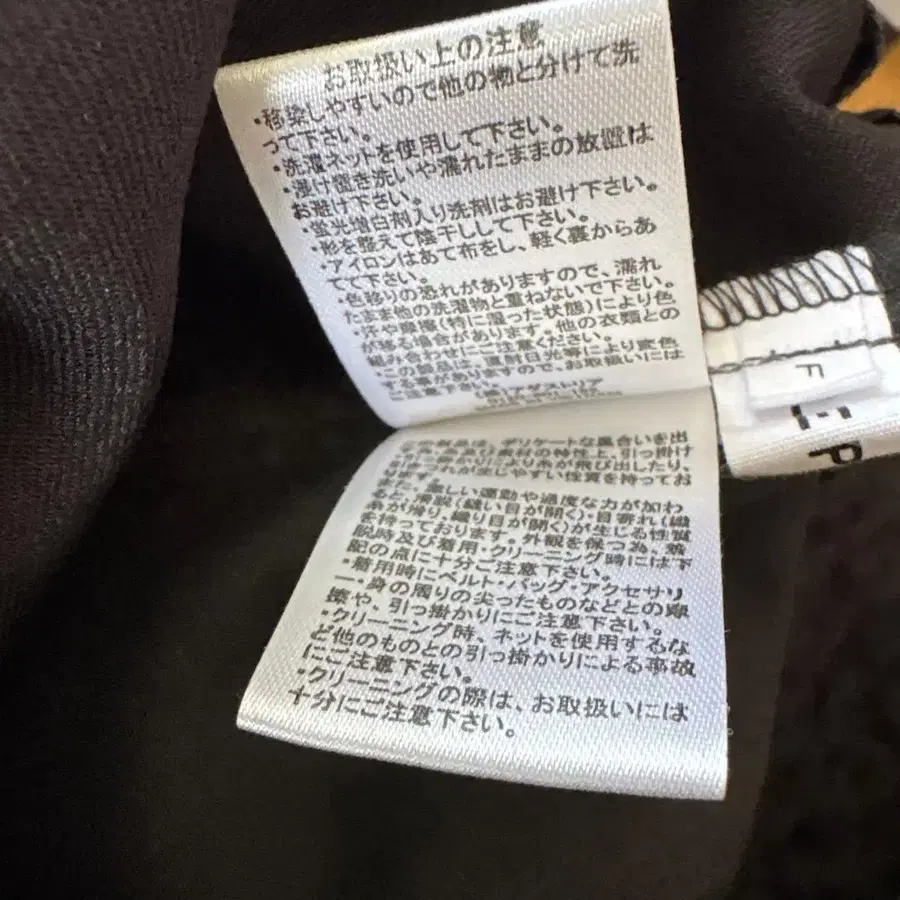 お取扱い上の注意
・移染しやすいので他の物と分けて洗
って下さい。
・洗濯ネットを使用して下さい。
・漬け置き洗いや濡れたままの放置は
お避け下さい。
・蛍光増白剤入り洗剤はお避け下さい。
・形を整えて陰干しして下さい。
・アイロンはあて布をし、軽く裏からあ
てて下さい。
・色移りの恐れがありますので、濡れ
たまま他の洗濯物と重ねないで下さい。
・汗や摩擦(特に湿った状態)により色
が移る場合があります。他の衣類との
組み合わせにご注意ください。
・この製品は直射日光等により変色
する事がありますので、お取扱いには
ご注意下さい。
この製品は、デリケートな風合いを出
引っ掛け
により糸が飛び出したり、
が生じやすい性質を持ってお
ります。
また、激しい運動や過度な力が加わ
ると、滑脱(縫い目が開く)・目寄れ(織
糸が滑り、織り目が開く)が生じる性質
を持っております。外観を保つ為、着
脱時及び着用・クリーニング時には下
記の点に十分ご注意下さい。
・着用時にベルト・バッグ・アクセサリ
ー・身の周りの尖ったものなどとの摩
擦や、引っ掛かりにご注意下さい。
・クリーニング時、ネットを使用するな
ど他のものとの引っ掛かりによる事故
にご注意下さい。
・クリーニングの際は、お取扱いには
十分にご注意下さい。
F